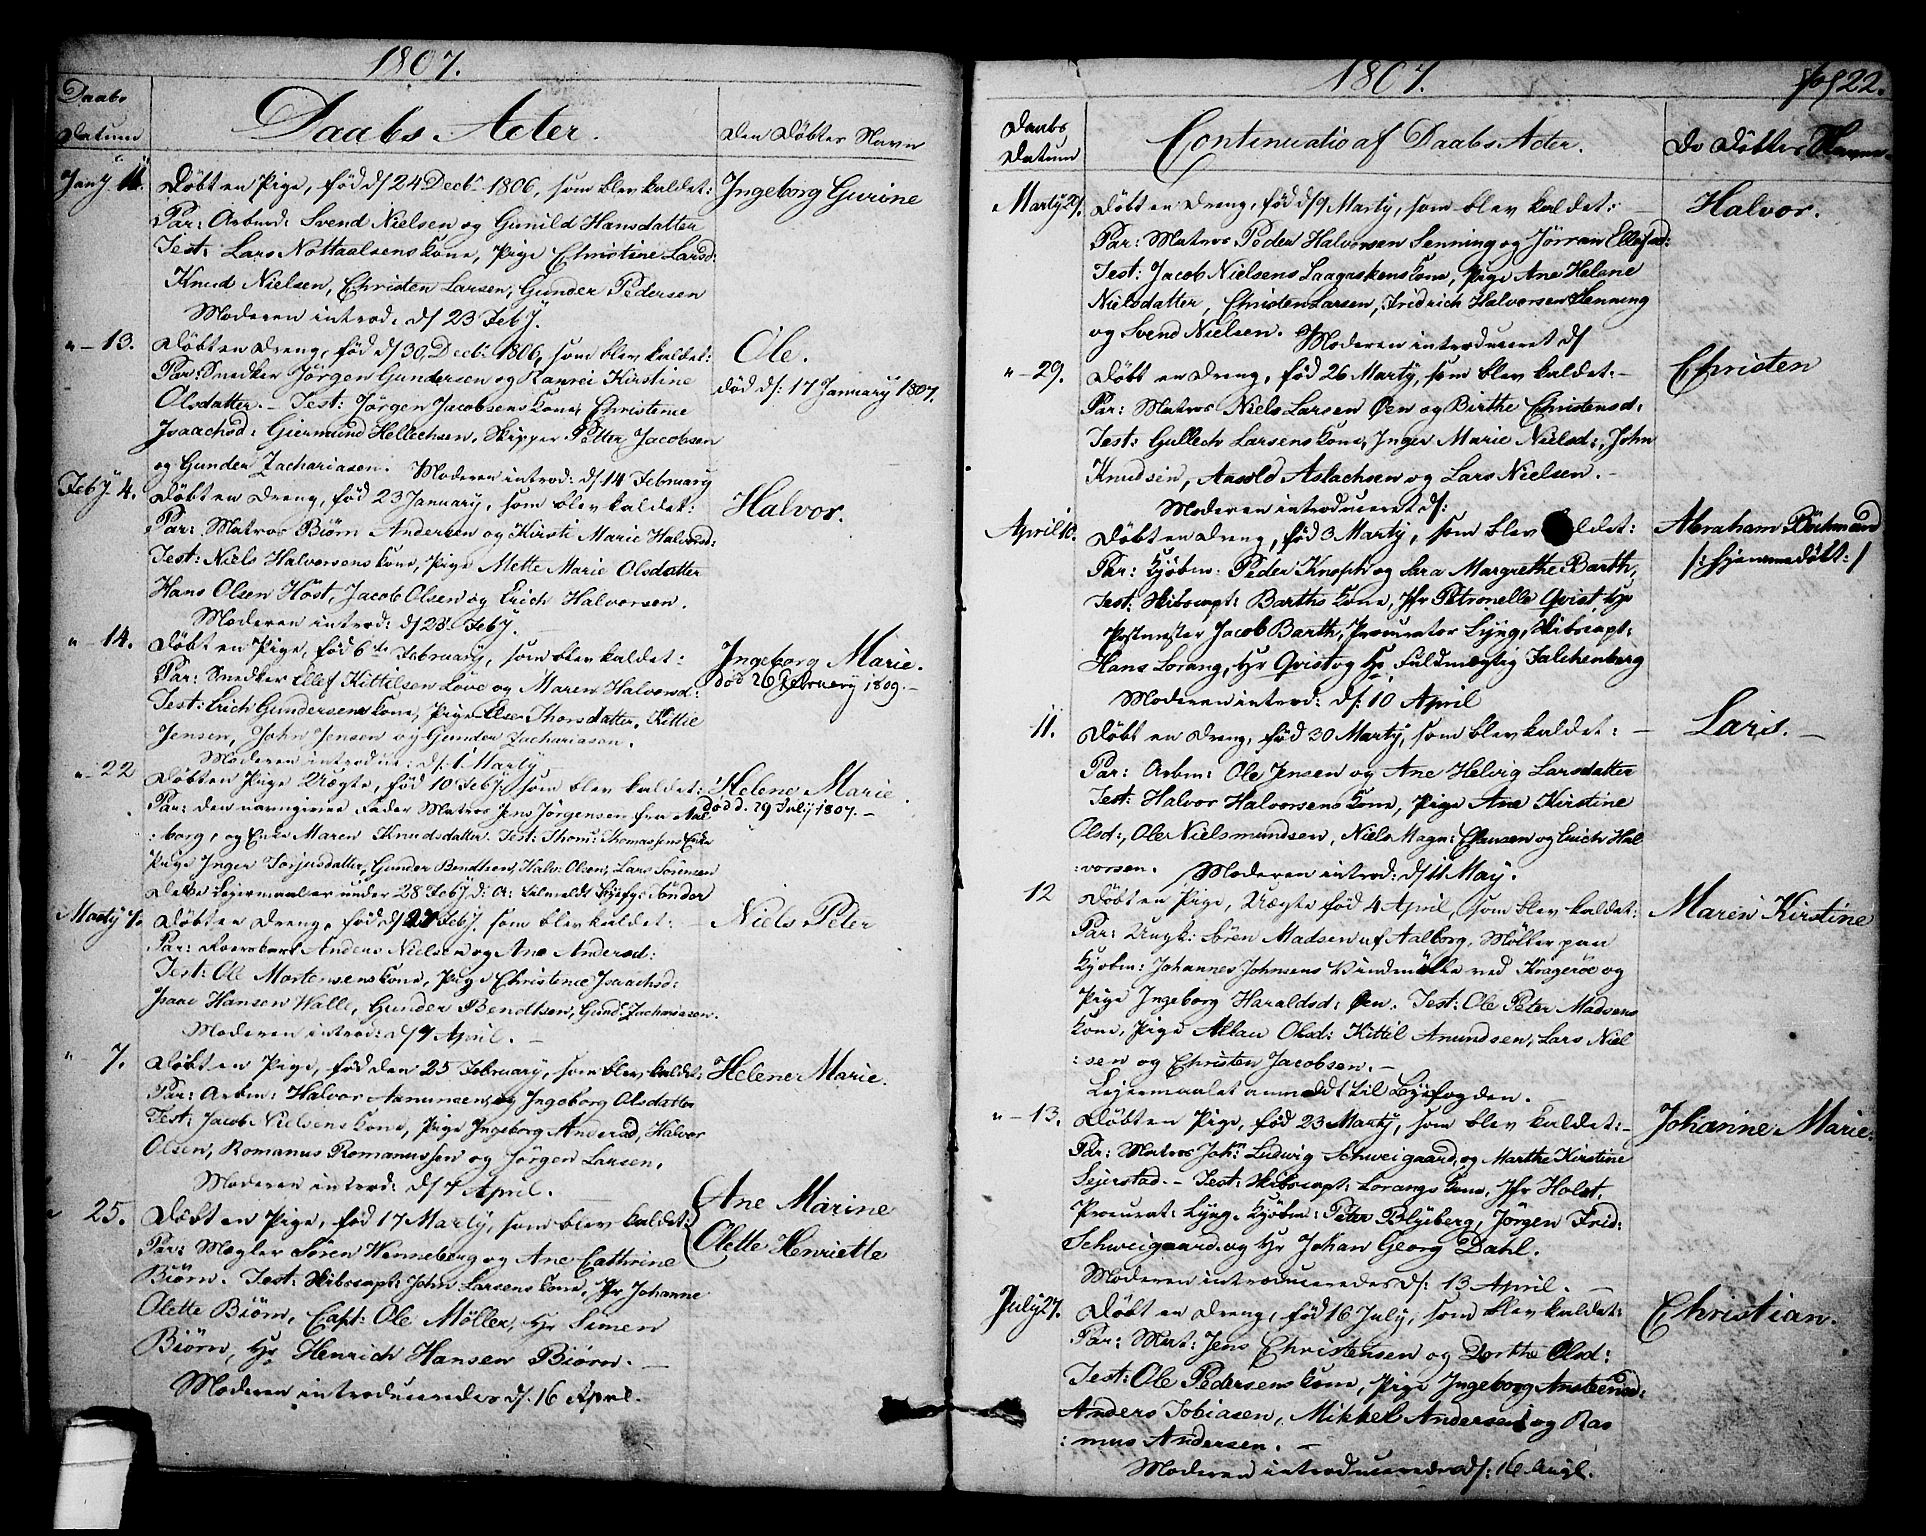 1807.
Daabs
Datum
Daabs Acter.
Den Döbtes Navn
Jany 11.
Döbt en Pige, föd d/ 24 Decbr 1806, som blev kaldet:
Ingeborg Gurine
Par: Arbmd: Svend Nielsen og Gunild Hansdatter
Test: Lars Nottaalsens Kone, Pige Christine Larsd:
Knud Nielsen, Christen Larsen, Gunder Pedersen
Moderen introd. d/ 23 Feby.
" - 13.
Döbt en Dreng, föd d/ 30 Decbr 1806, som blev kaldet:
Ole.
Par: Snedker Jörgen Gundersen og Kirstine
död d/: 17 January 1807.
Olsdatter. - Test: Jörgen Jacobsens Kone, Christence
Isaachsd: Giermund Hellechsen, Skipper Petter Jacobsen
og Gunder Zachariasen. Moderen introd: d/ 14 February
Feby 4.
Döbt en Dreng, föd 23 January, som blev kaldet:
Halvor.
Par: Matros Biörn Andersen og Kirsti Marie Halvorsd:
Test: Niels Halvorsens Kone, Pige Mette Marie Olsdatter
Hans Olsen Höst, Jacob Olsen og Erich Halvorsen.
Moderen introd: d/ 28 Feby.
" 14.
Döbt en Pige, föd 6te February, som blev kaldet:
Ingeborg Marie.
Par: Snedker Ellef Kittilsen Löve og Maren Halvorsd:
död 26 February 1809. -
Test: Erich Gundersens Kone, Pige Else Thorsdatter, Kittil
Jensen, John Jensen og Gunder Zachariasen.
Moderen introdu: d/: 1 Marty
" - 22
Döbt en Pige Uægte, föd 10 Feby: som blev kaldet:
Helene Marie.
Par: den navngivne Fader Matros Jens Jörgensen fra Aal
död d. 29 July 1807. -
:borg, og Enke Maren Knudsdatter. Test: Thom: Thomassens Enke
Pige Inger Torjusdatter, Gunder Bendtsen, Halv: Olsen, Lars Sörensen
Dette Lejermaal er under 28 Feby d: A: tilmeldt
Marty 7.
Döbt en Dreng, föd d/ 27 Feby. som blev kaldet: -
Niels Peter
Par: Anders Nielsen og Ane Andersd:
Test: Ole Mortensens Kone, Pige Christence Isaachsd:
Isaac Hansen Walle, Gunder Bendtsen, Gund: Zachariasen.
Moderen introd: d/ 9 April. -
" 7.
Döbt en Pige, föd den 25 February, som blev kaldet:
Helene Marie.
Par: Arbm: Halvor Aanunsen, og Ingeborg Olsdatter
Test: Jacob Nielsens Kone, Pige Ingeborg Andersd, Halvor
Olsen, Romanus Romanussen og Jörgen Larsen.
Moderen introd: d/ 7 April.
25.
Döbt en Pige, föd 17 Marty, som blev kaldet:
Ane Marine
Olette Henriette
Par: Mægler Sören Henneberg og Ane Cathrine
Biörn. Test: Skibscapt: John Larsens Kone, Jfr Johanne
Olette Biörn, Capt: Ole Möller, Hr Simen
Biörn, Hr Henrich Hansen Biörn. -
Moderen introduceredes d/. 16 April.
1807.
pag 22.
Daabs
Datum
Continuatio af Daabs Acter.
De Döbtes Navne.
Marty 29.
Döbt en Dreng, föd d/ 9 Marty, som blev kaldet: -
Halvor.
Par: Matros Peder Halvorsen Henning og Jörran Ellefsd:
Test: Jacob Nielsens Kone, Pige Ane Helene
Nielsdatter, Christen Larsen, Fridrich Halvorsen Henning
og Svend Nielsen. Moderen introduceret d/
" - 29.
Döbt en Dreng, föd 26 Marty, som blev kaldet: -
Christen
Par: Matros Niels Larsen Öen og Birthe Christensd:
Test: Gullech Larsens Kone, Inger Marie Nielsd:, John
Knudsen, Aasold Aslachsen og Lars Nielsen. -
Moderen introduceret d/:
April 10.
Döbt en Dreng, föd 3 Marty, som blev kaldet:
Abraham
/: hjemmedöbt: /
Par: Kjöbm: Peder Knoph og Sara Margrethe Barth,
Test: Skibscapt: Barths Kone, Jfr Petronelle Qvist, Hr
Postmester Jacob Barth, Procurator Lyng, Skibscapt:
Hans Lorang, Hr Qvist og Hr Fuldmægtig Falchenberg
Moderen introd: d/: 10 April
11.
Döbt en Dreng, föd 30 Marty, som blev kaldet: -
Laris. -
Par: Arbm: Ole Jensen og Ane Helvig Larsdatter
Test: Halvor Halvorsens Kone, Pige Ane Kirstine
Olsd:, Ole Nielsmundsen, Niels Magn: Clausen og Erich Hal
:vorsen. Moderen introd: d/ 11 May.
12
Döbt en Pige, Uægte föd 4 April, som blev kaldet:
Maren Kirstine
Par: Ungk: Sören Madsen af Aalborg, Möller paa
Kjöbm: Johannes Johnsens Vindmölle ved Kragerøe og
Pige Ingeborg Haraldsd: Öen. Test: Ole Peter Madsens
Kone, Pige Olsd: Kittil Amundsen, Lars Niel
:sen og Christen Jacobsen. -
Lejermaalet anmeldt til Byefogden.
" - 13.
Döbt en Pige, föd 23 Marty, som blev kaldet: -
Johanne Marie.
Par: Matros Joh: Ludwig Schweigaard, og Marthe Kirstine
Sejerstad. - Test: Skibscapt: Lorangs Kone, Jfr Holst,
Procurat: Lyng, Kjöbm: Peter Blyeberg, Jörgen Frid:
Schweigaard og Hr Johan Georg Dahl.
Moderen introduceredes d/: 13 April. -
July 27.
Döbt en Dreng, föd 16 July, som blev kaldet:
Christian.
Par: Mat: Jens Christensen og Dorthe Olsd:
Test: Ole Pedersens Kone, Pige Ingeborg
Anders Tobiasen, Mikkel Andersen og Ras
:mus Andersen. -
Moderen introduceredes d/: 16 Aug.